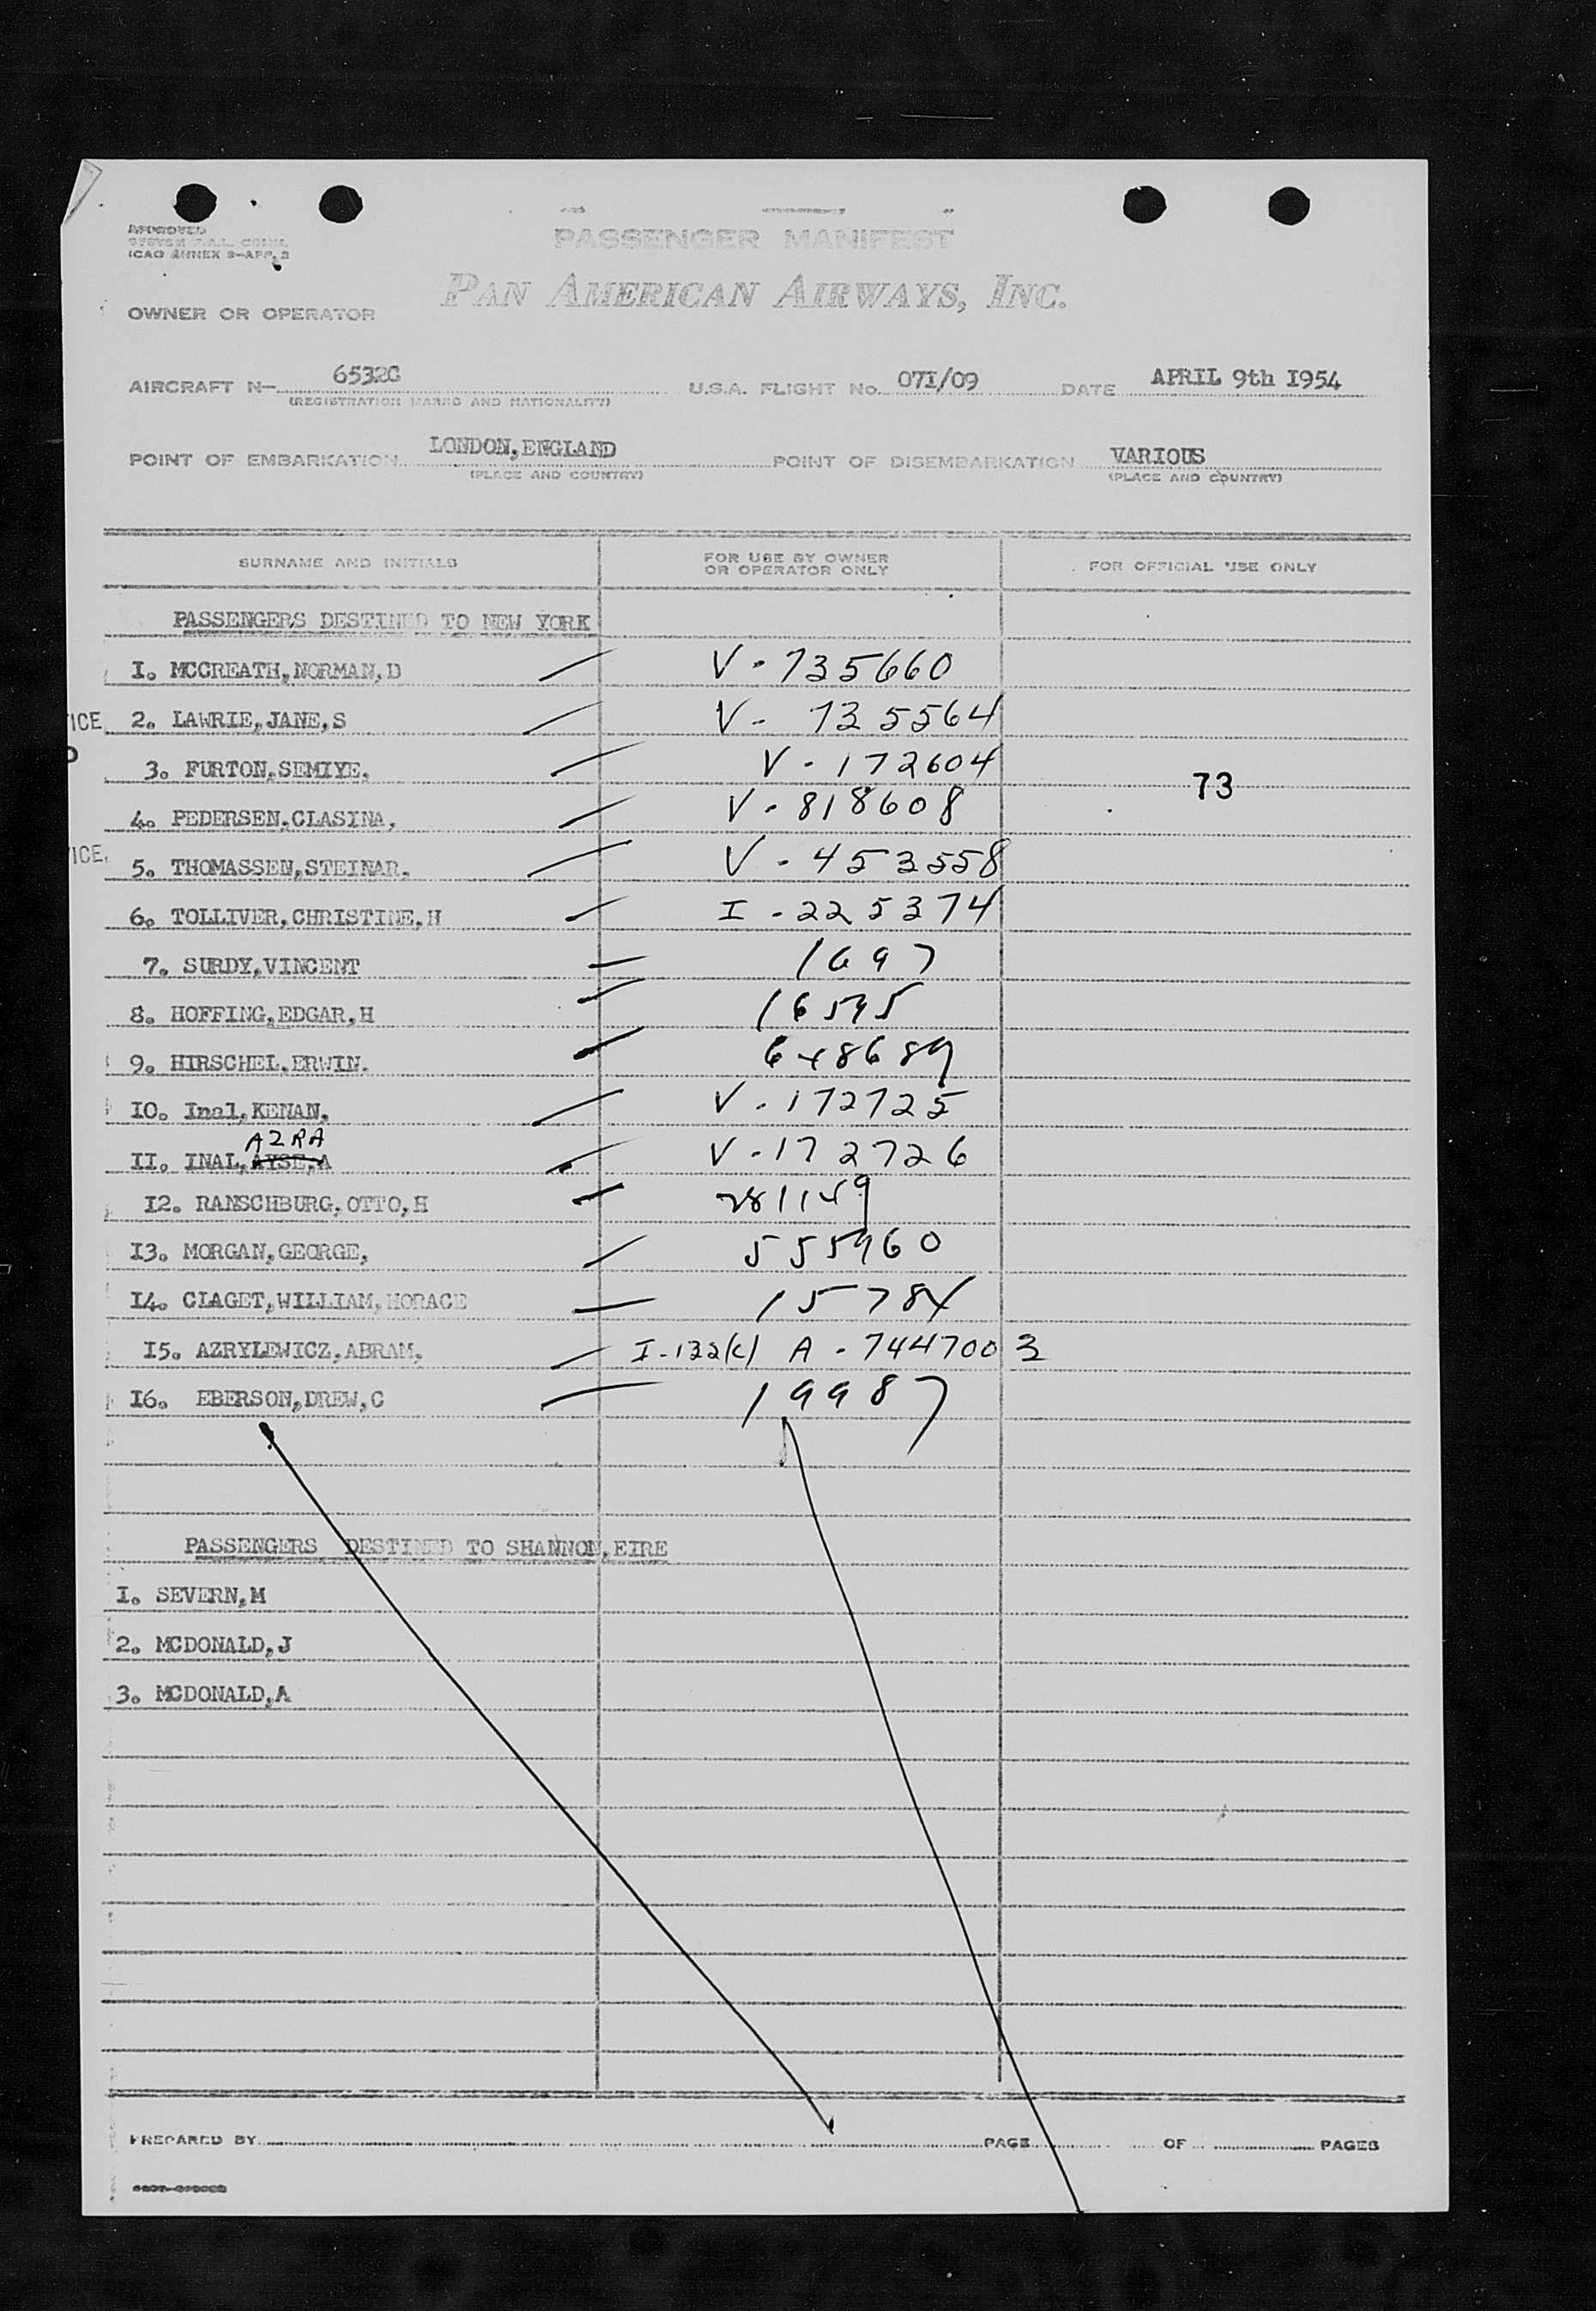 APPROVED
SYSTEM F.A.L. COMM.
ICAO ANNEX 9-APP. 2
PASSENGER MANIFEST
PAN AMERICAN AIRWAYS, INC.
OWNER OR OPERATOR
AIRCRAFT N- 6532C U.S.A. FLIGHT No. 07I/09 DATE APRIL 9th I954
(REGISTRATION MARKS AND NATIONALITY)
POINT OF EMBARKATION LONDON,ENGLAND POINT OF DISEMBARKATION VARIOUS
(PLACE AND COUNTRY) (PLACE AND COUNTRY)
SURNAME AND INITIALS FOR USE BY OWNER OR OPERATOR ONLY FOR OFFICIAL USE ONLY
PASSENGERS DESTINED TO NEW YORK
I. MCCREATH,NORMAN,D V-735660
ICE 2. LAWRIE,JANE,S V- 735564
3. FURTON,SEMIYE, V-172604
73
4. PEDERSEN,CLASINA, V-818608
ICE. 5. THOMASSEN,STEINAR, V-453558
6. TOLLIVER,CHRISTINE,H I-225374
7. SURDY,VINCENT 1697
8. HOFFING,EDGAR,H 16595
9. HIRSCHEL,ERWIN. 648689
IO. Inal,KENAN, V-172725
AZRA
II. INAL,AYSE,A V-172726
I2. RANSCHBURG,OTTO,H 281149
I3. MORGAN,GEORGE, 555960
I4. CLAGET,WILLIAM,HORACE 15784
I5. AZRYLEWICZ,ABRAM, I-132(c) A-7447003
I6. EBERSON,DREW,C 19987
PASSENGERS DESTINED TO SHANNON,EIRE
I. SEVERN,M
2. MCDONALD,J
3. MCDONALD,A
PREPARED BY PAGE OF PAGES